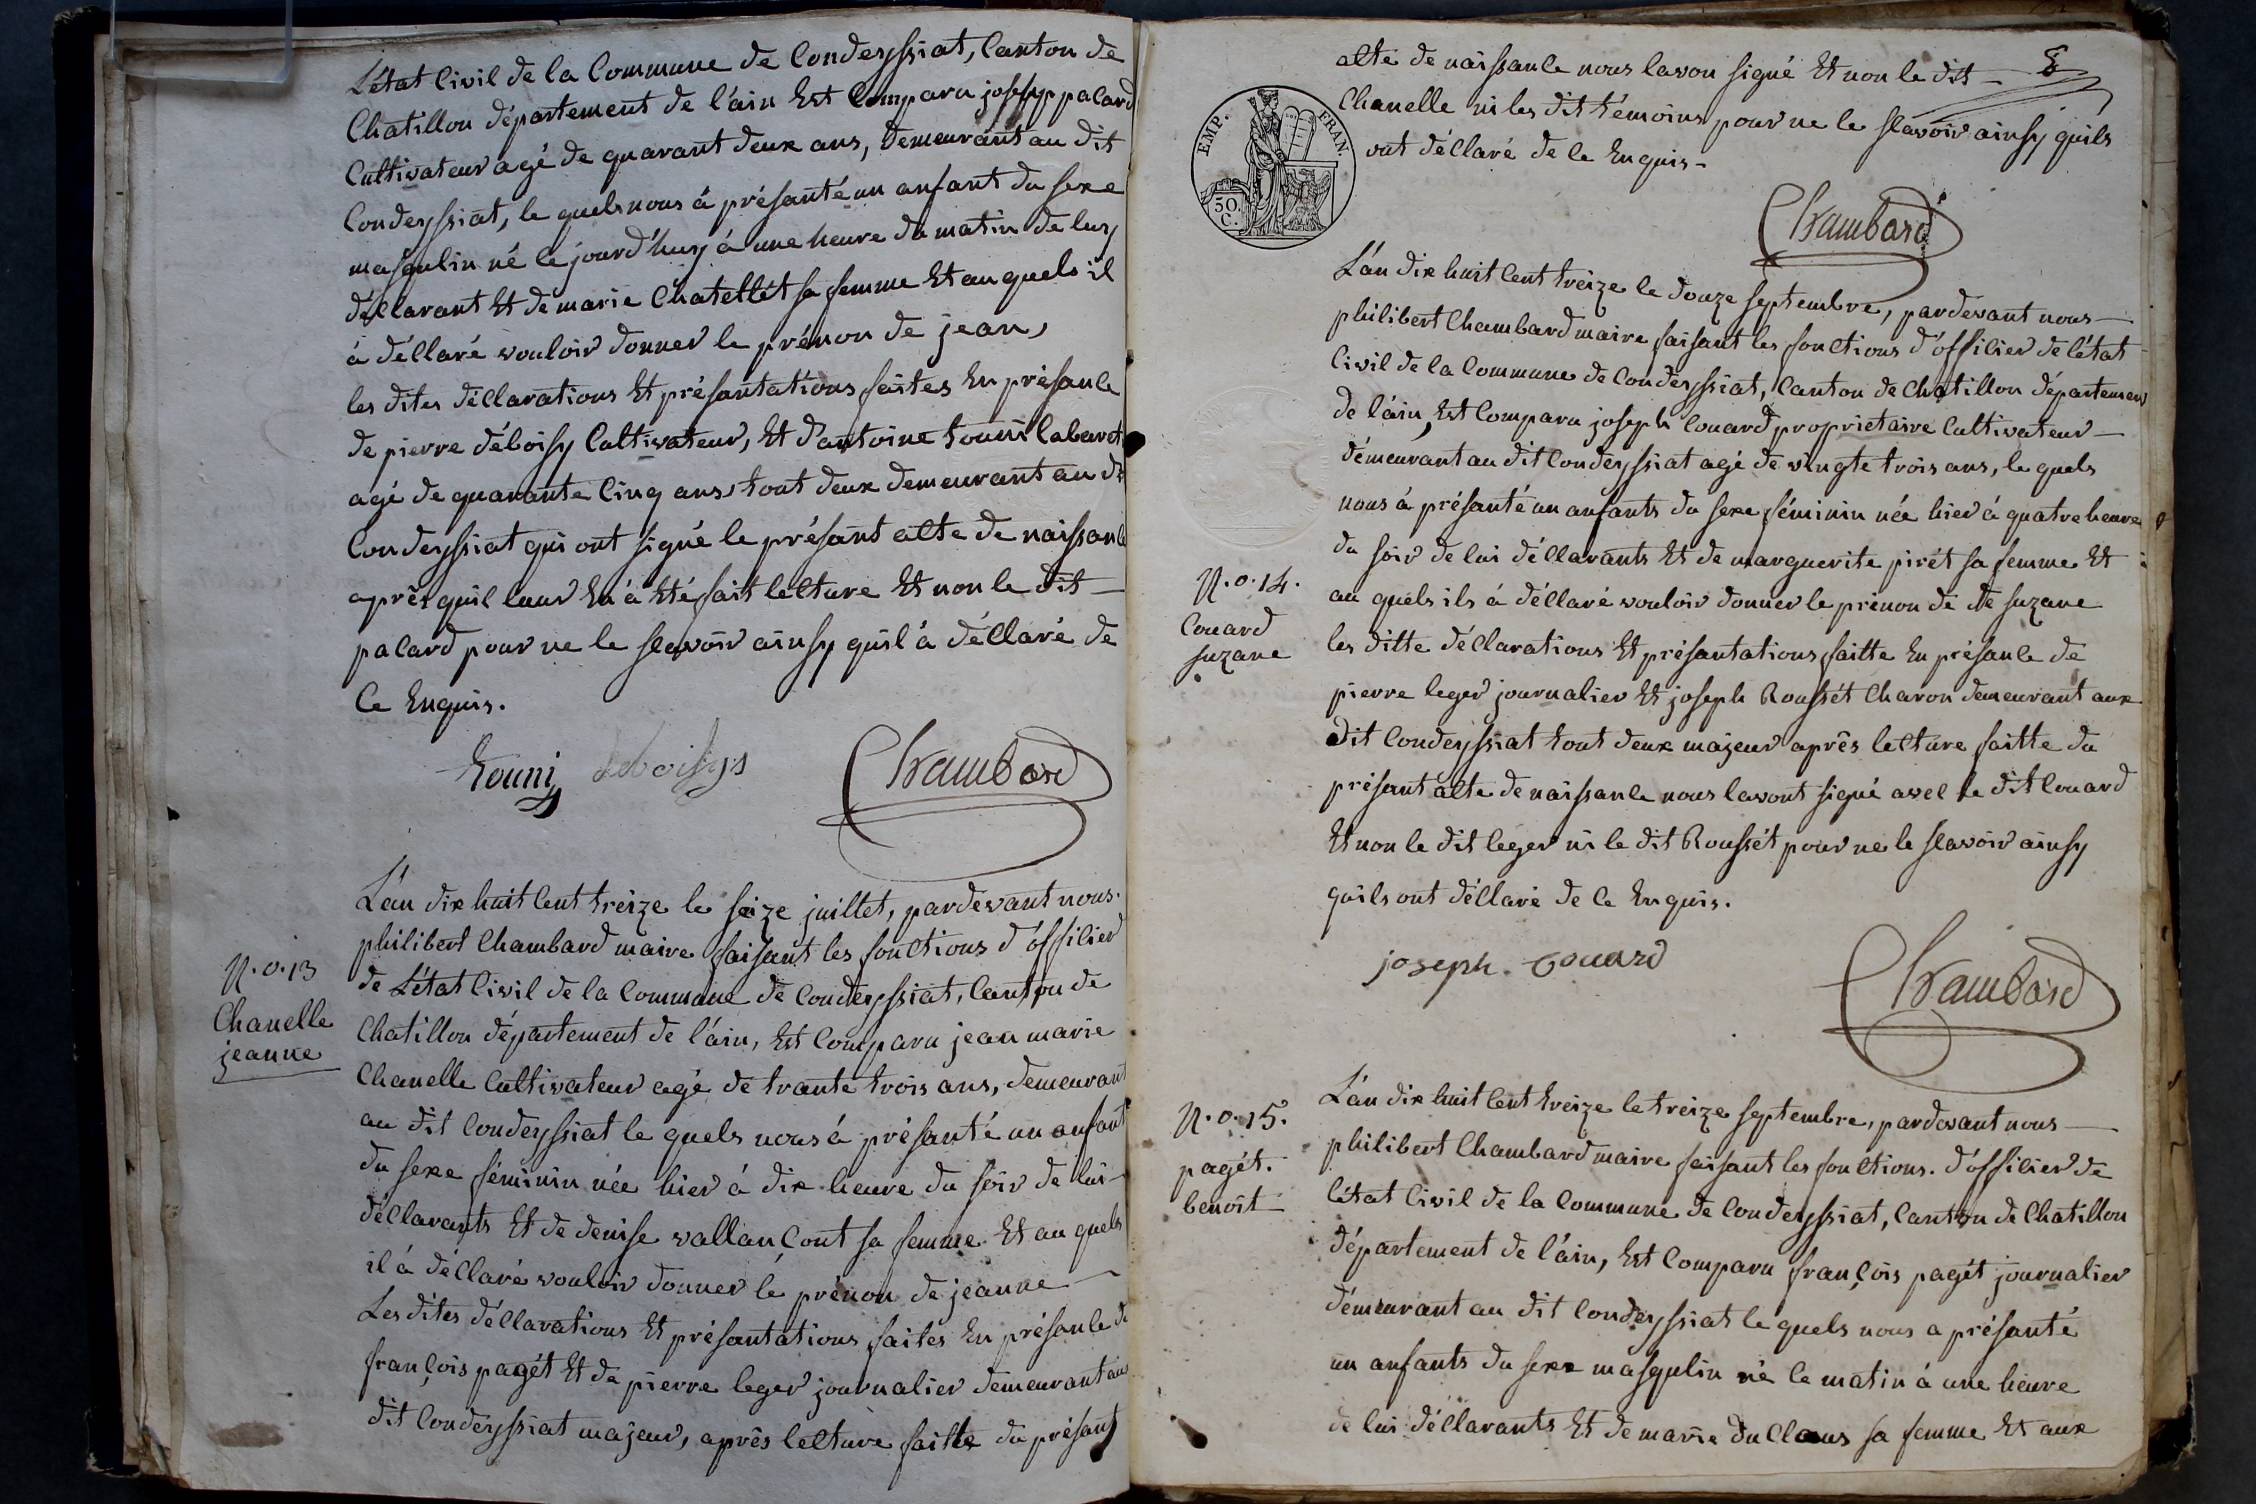 L'état Civil de la Commune de Condeyssiat, Canton de
Chatillon département de l'ain Est Comparu joseph pacard
Cultivateur agé de quarant deux ans, demeurant au dit
Condeyssiat, le quels nous á présanté un anfant du sexe
masqulin né le jourd'huy á une heure du matin de luy
déclarant Et de marie Chatellét sa femme Et au quels il
á déclaré vouloir donner le prénon de jean,
les dites déclarations Et présantations faites En présance
de pierre déboisy Cultivateur, Et d'antoine touni Cabaret
agé de quarante Cinq ans, tout deux demeurant au dt
Condeyssiat qui ont signé le présant acte de naissance
aprés quil leur En á Eté fait lecture Et non le dit —
pacard pour ne le scavoir ainsy quil á déclaré de
Ce Enquis.
touni deboisys Chambard
L'án dix huit Cent treize le seize juillet, pardevant nous.
philibert Chambard maire faisant les fonctions d'officier
de L'état Civil de la Commune de Condeyssiat, Canton de
Chatillon département de l'áin, Est Comparu jean marie
Chanelle Cultivateur agé de trante trois ans, demeurant
au dit Condeyssiat le quels nous á présanté un anfant
du sexe féminin née hier á dix heure du soir de lui
déclarants Et de denise vallançont sa femme Et au quels
il á déclaré vouloir donner le prénon de jeanne —
Les dites déclarations Et présantations faites En présance de
françois pagét Et de pierre leger journalier demeurant aux
dit Condeyssiat majeur, aprés lecture faitte du présant
N.o.13
Chanelle
jeanne
8
acte de naissance nous lavon signé Et non le dit —
Chanelle ni les dit témoins pour ne le scavoir ainsy quils
ont déclaré de Ce Enquis –
EMP. FRAN.
50.
C.
Chambard
L'án dix huit Cent treize le douze septembre, pardevant nous —
philibert Chambard maire faisant les fonctions d'officier de l'état
Civil de la Commune de Condeyssiat, Canton de Chatillon départemen
de l'áin, Est Comparu joseph Couard proprietaire Cultivateur —
démeurant au dit Condeyssiat agé de vingte trois ans, le quels
nous á présanté un anfants du sexe féminin née hier á quatre heure
du soir de lui déclarants Et de marguerite pirét sa femme Et
au quels ils á déclaré vouloir donner le prénon de de suzane
les ditte déclarations Et présantations faitte En présance de
pierre leger journalier Et joseph Roussét Charon demeurant aux
dit Condeyssiat tout deux majeur aprés lecture faitte du
présant acte de naissance nous lavont signé avec le dit Couard
Et non le dit leger ni le dit Roussét pour ne le scavoir ainsy
quils ont déclaré de Ce Enquis.
N.o.14.
Couard
suzane
joseph. Couard Chambard
L'án dix huit Cent treize le treize septembre, pardevant nous —
philibert Chambard maire faisant les fonctions. d'officier de
l'état Civil de la Commune de Condeyssiat, Canton de Chatillon
département de l'áin, Est Comparu françois pagét journalier
démeurant au dit Condeyssiat le quels nous a présanté
un anfants du sexe masqulin né Ce matin á une heure
de lui déclarants Et de marie duClous sa femme Et aux
N.o.15.
pagét.
benoit